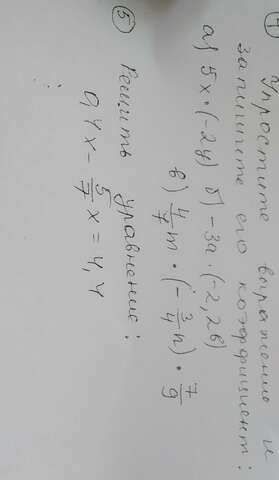 ① Упростите выражение и
запишите его коэффициент:
а) 5x·(-2y) б) -3a·(-2,2в)
в) 4/7 m · (-3/4 n) · 7/9
⑤ Решить уравнение:
0,4x - 5/7 x = 4,4